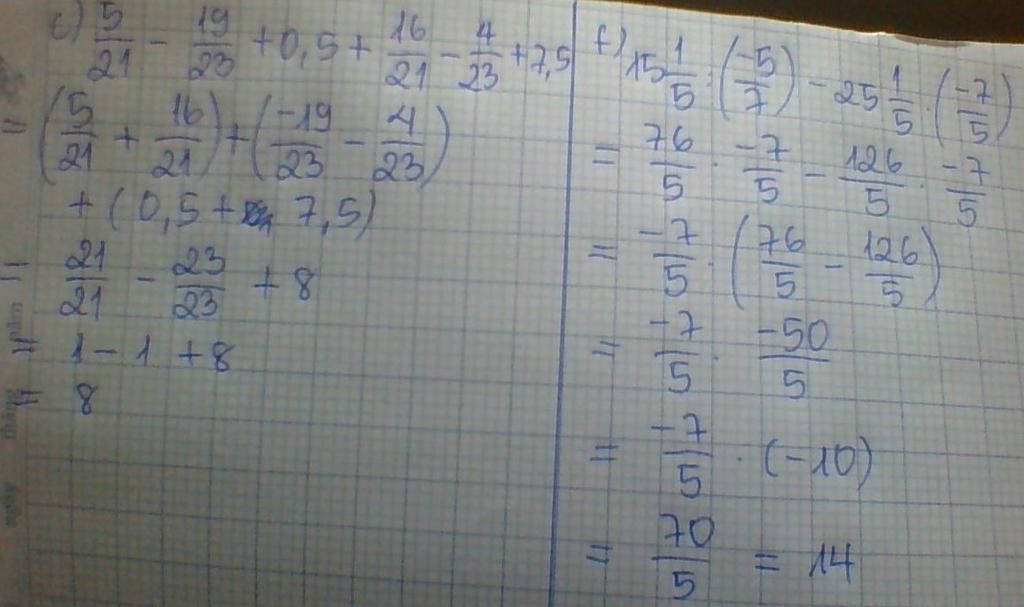 c) 5/21 - 19/23 + 0,5 + 16/21 - 4/23 + 7,5
= (5/21 + 16/21) + (-19/23 - 4/23)
+ (0,5 + 7,5)
= 21/21 - 23/23 + 8
= 1 - 1 + 8
= 8
f) 15 1/5 : (-5/7) - 25 1/5 . (-7/5)
= 76/5 . -7/5 - 126/5 . -7/5
= -7/5 . (76/5 - 126/5)
= -7/5 . -50/5
= -7/5 . (-10)
= 70/5 = 14